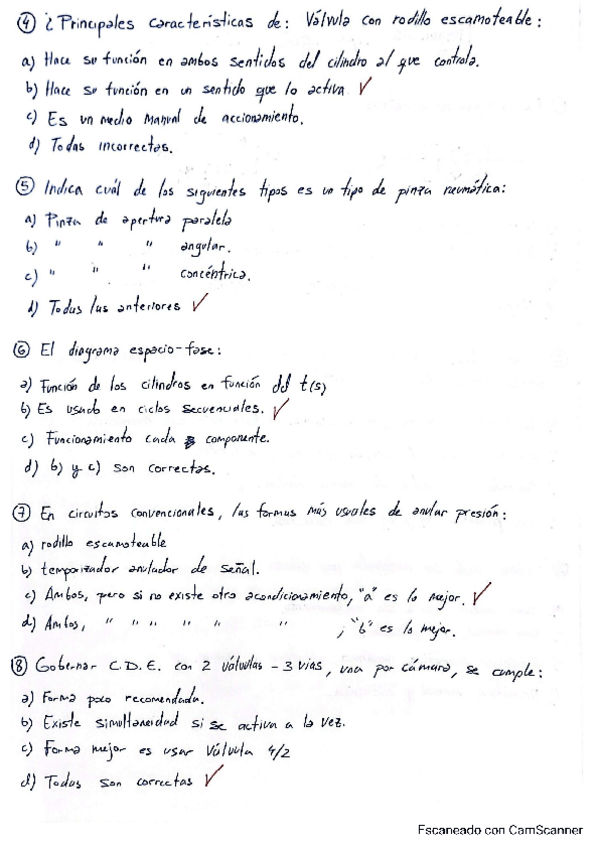 ④ ¿Principales características de: Válvula con rodillo escamoteable:
a) Hace su función en ambos sentidos del cilindro al que controla.
b) Hace su función en un sentido que lo activa ✓
c) Es un medio Manual de accionamiento.
d) Todas incorrectas.
⑤ Indica cuál de los siguientes tipos es un tipo de pinza neumática:
a) Pinza de apertura paralela
b) " " " angular.
c) " " " concéntrica.
d) Todas las anteriores ✓
⑥ El diagrama espacio-fase:
a) Función de los cilindros en función del t(s)
b) Es usado en ciclos secuenciales. ✓
c) Funcionamiento cada componente.
d) b) y c) son correctas.
⑦ En circuitos convencionales, las formas más usuales de anular presión:
a) rodillo escamoteable
b) temporizador anulador de señal.
c) Ambos, pero si no existe otro acondicionamiento, "a" es lo mejor. ✓
d) Ambos, " " " " " " , "b" es lo mejor.
⑧ Gobernar C.D.E. con 2 válvulas - 3 vías, una por cámara, se cumple:
a) Forma poco recomendada.
b) Existe simultaneidad si se activa a la vez.
c) Forma mejor es usar Válvula 4/2
d) Todas son correctas ✓
Escaneado con CamScanner